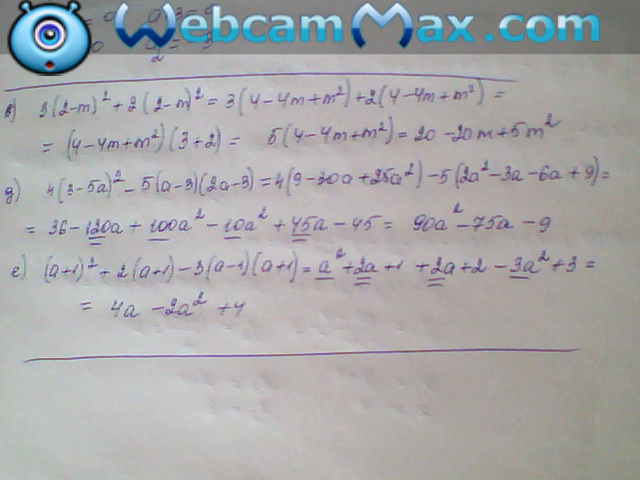 WebcamMax.com
в) 3(2-m)² + 2(2-m)² = 3(4-4m+m²)+2(4-4m+m²) =
= (4-4m+m²)(3+2) = 5(4-4m+m²) = 20-20m+5m²
д) 4(3-5a)² - 5(a-3)(2a-3) = 4(9-30a+25a²) - 5(2a²-3a-6a+9) =
= 36-120a+100a²-10a²+45a-45 = 90a²-75a-9
е) (a+1)² + 2(a+1) - 3(a-1)(a+1) = a²+2a+1 +2a+2-3a²+3 =
= 4a -2a² +4